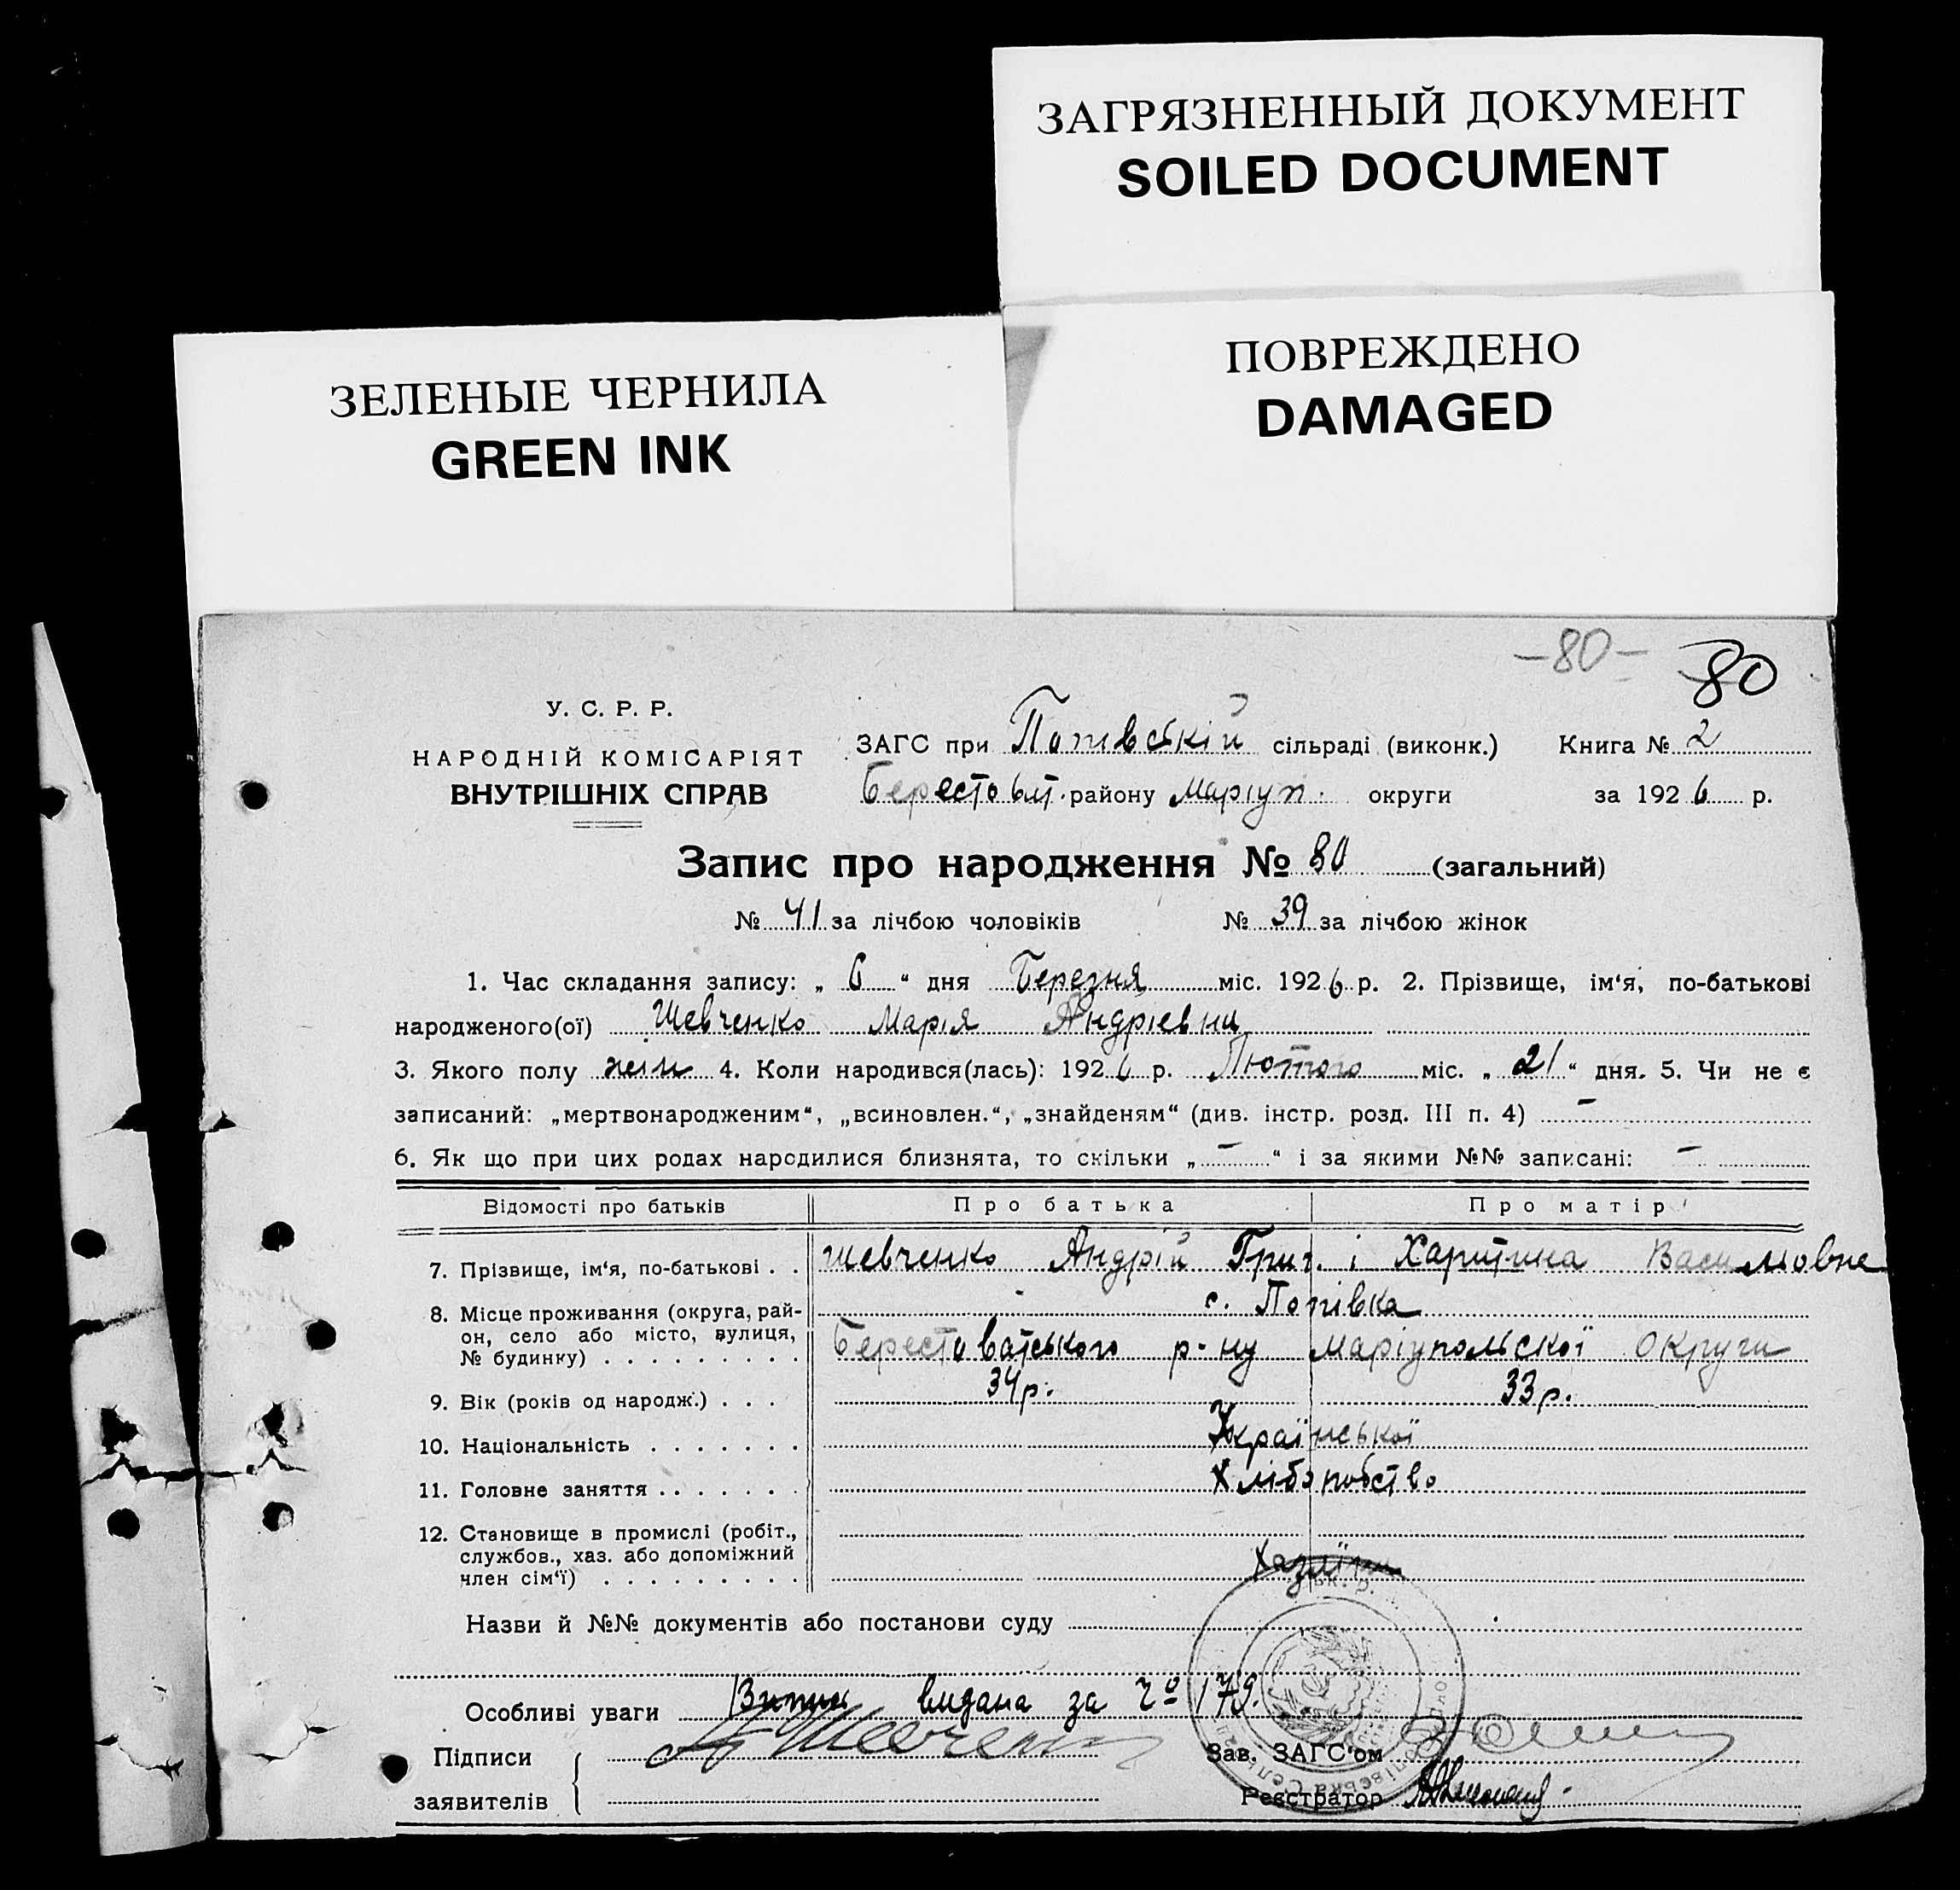 ЗАГРЯЗНЕННЫЙ ДОКУМЕНТ
SOILED DOCUMENT
ПОВРЕЖДЕНО
DAMAGED
ЗЕЛЕНЫЕ ЧЕРНИЛА
GREEN INK
–80– 80
У. С. Р. Р.
НАРОДНІЙ КОМІСАРІЯТ
ВНУТРІШНІХ СПРАВ
ЗАГС при Попівській сільраді (виконк.) Книга № 2
Берестоват. району Маріуп. округи за 1926 р.
Запис про народження № 80 (загальний)
№ 41 за лічбою чоловіків № 39 за лічбою жінок
1. Час складання запису: „ 6 “ дня Березня міс. 1926 р. 2. Прізвище, ім‘я, по-батькові
народженого(ої) Шевченко Марія Андріевна
3. Якого полу жін 4. Коли народився(лась): 1926 р. Лютого міс. „ 21 “ дня. 5. Чи не є
записаний: „мертвонародженим“, „всиновлен.“, „знайденям“ (див. інстр. розд. III п. 4) –
6. Як що при цих родах народилися близнята, то скільки „ – “ і за якими №№ записані: –
Відомості про батьків Про батька Про матір
7. Прізвище, ім‘я, по-батькові . . Шевченко Андрій Григ. і Харитина Васильовне
8. Місце проживання (округа, рай- с. Попівка
он, село або місто, вулиця,
№ будинку) . . . . . . . . . Берестоватського р-ну Маріупольскої Округи
9. Вік (років од народж.) . . . 34 р. 33 р.
10. Національність . . . . . . . Української
11. Головне заняття . . . . . . . Хліборобство
12. Становище в промислі (робіт.,
службов., хаз. або допоміжний
член сім‘ї) . . . . . . . . .
Назви й №№ документів або постанови суду
Особливі уваги видана за № 179.
Підписи А Шевченко Зав. ЗАГС‘ом
заявителів Реєстратор